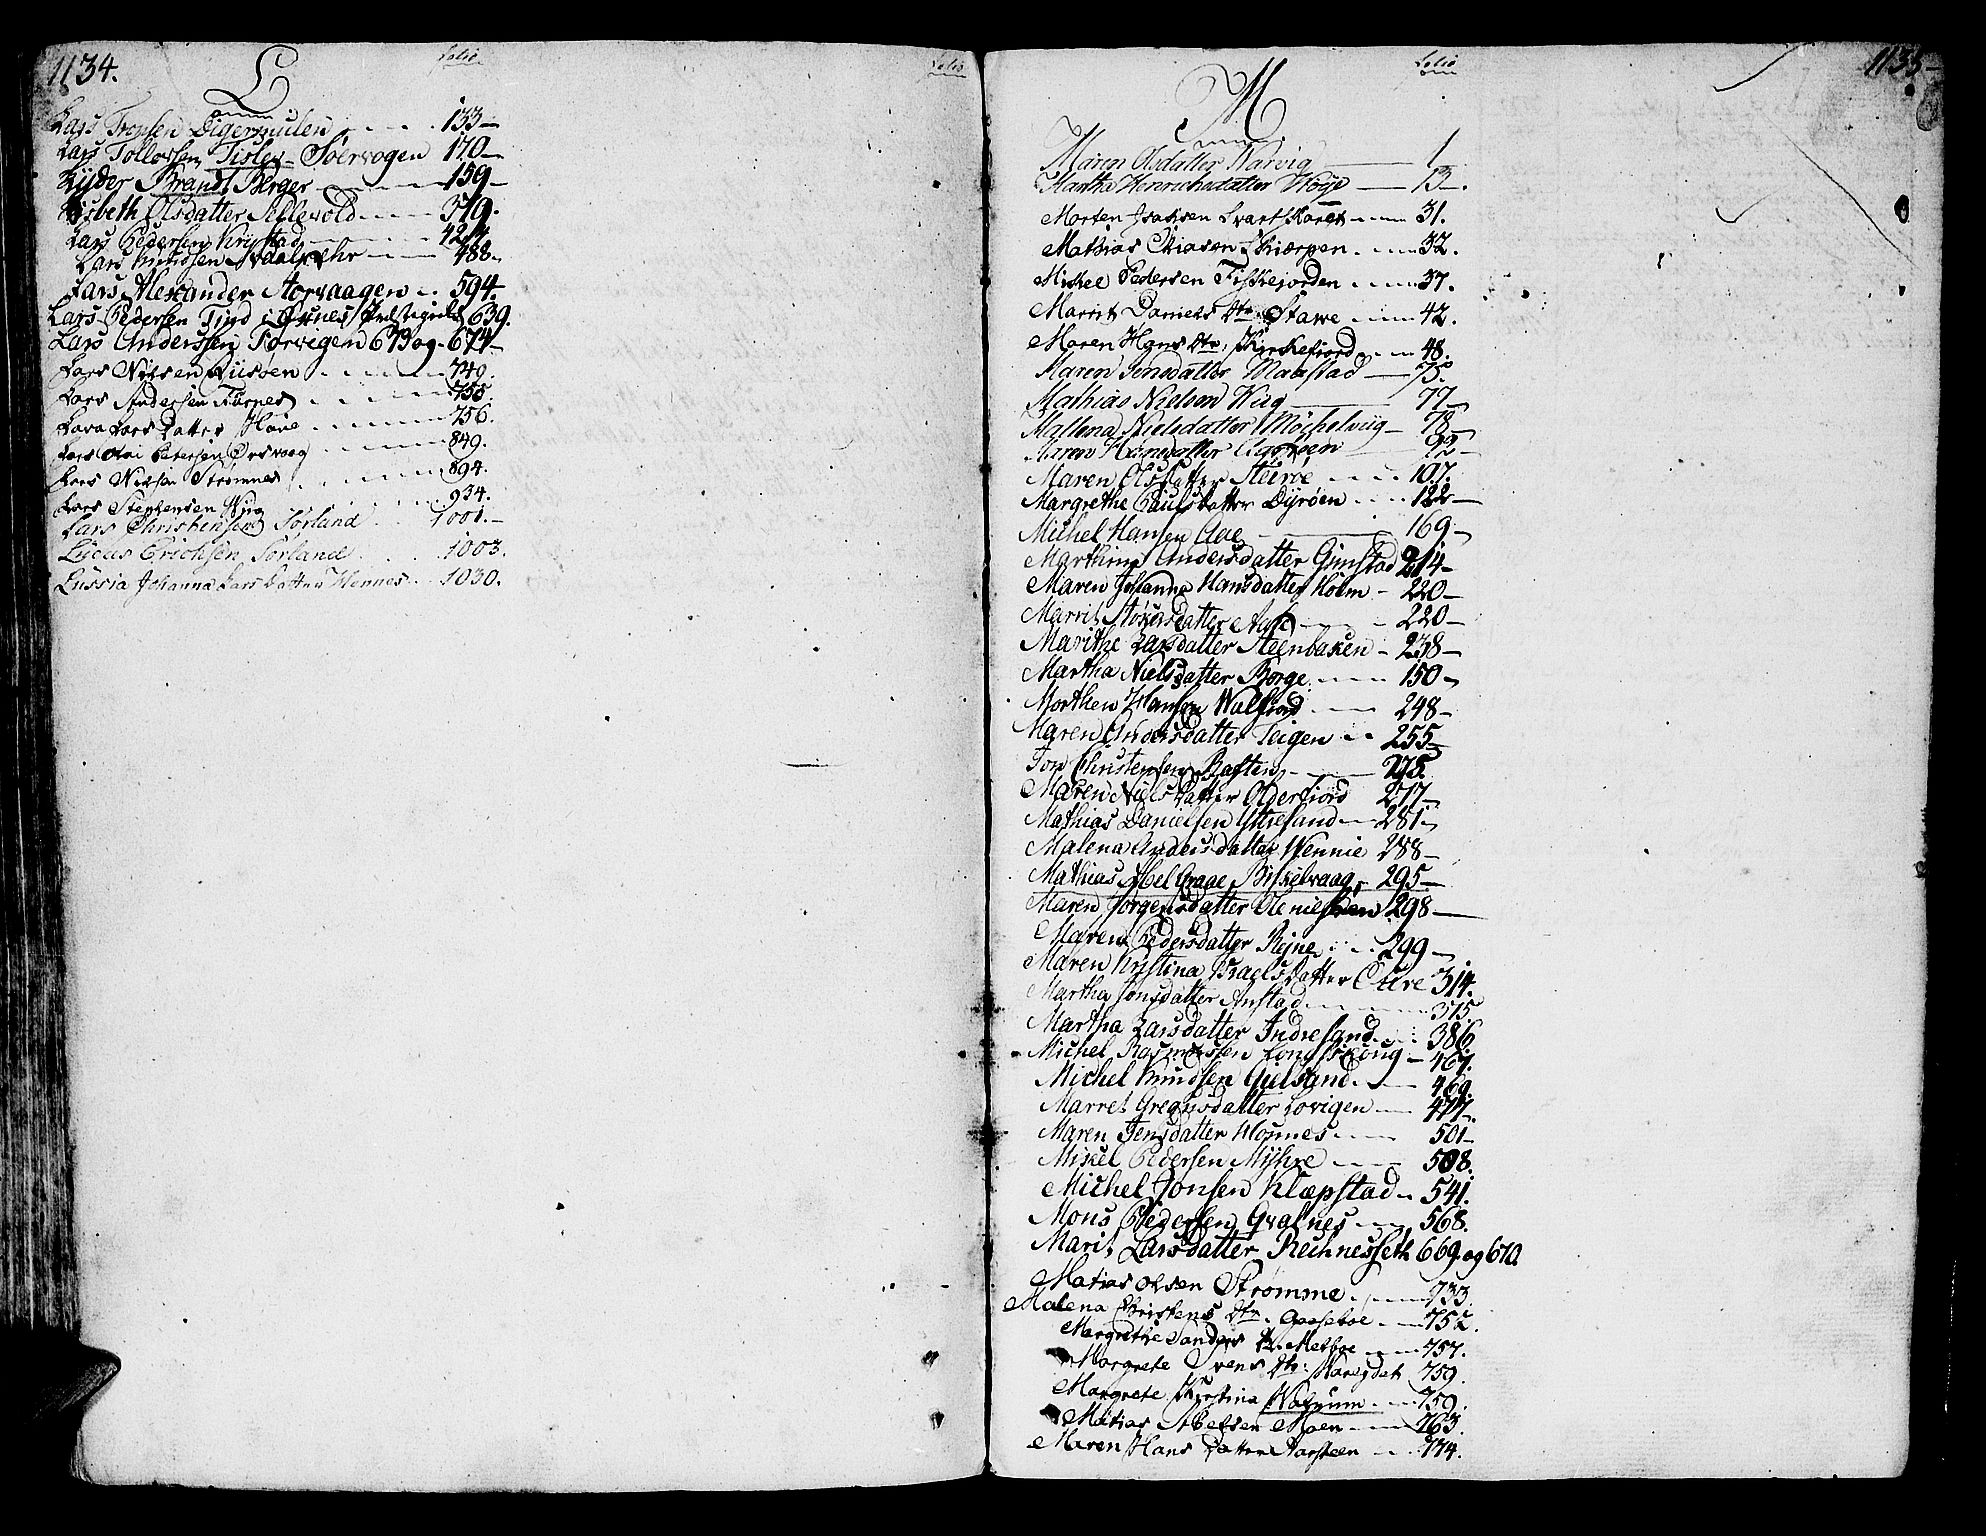 1134.
L
Folio
Folio
Lars Digermulen 133
Lars Tollorsen Tisley Sørvogen 170
Lyder Brandt Berger 159
Lisbeth Olsdatter Sellevold 379.
Lars Pedersen Krystad 424.
Lars Knudsen 488
Lars Alexander Storvaagen 594
Lars Pedersen Tind i Præstegield 639.
Lars Anderssen Torvigen 673 og 674
Lars Nilsen 749.
Lars Andersen Farnes 755.
Lara Lars Datter 756.
Lars Olai Petersen Ørsvaag 849.
Lars Nielsen Strømnes 894.
Lars Stephensen 934.
Lars Christensen Sørland 1001.
Lycas Erichsen Sørland 1003.
Lussia Johanna Larsdatter Hennes 1030.
1135
M
Folio
Maren Olsdatter Narvig 1
Martha Henrichsdatter 13.
Morten Isaksen 31.
Mathias Skiærpen 32.
Mickel Pedersen Fiskefjorden 37.
Marrit Daniels Dtr Stawe 42.
Maren Hans Dtr. Kirkefiord 48.
Maren Jensdatter Maastad 75.
Mathias Nielsen 77
Mallena Nielsdatter 78
Maren Hansdatter 92
Maren Olsdatter Steiröe 107.
Margrethe Paulsdatter Dyröen 122
Michel Hansen Aae 169
Marthina Andersdatter Gimstad 214
Maren Johanna Hansdatter Holm 220
Marrit 220
Marithe Larsdatter Steenbaken 238
Martha Nielsdatter Borge 150
Morthen Hansen Walfiord 248
Maren Andersdatter Teigen 255
Jon Christensen Raften 275.
Maren Nielsdatter Olderfiord 277
Mathias Danielsen Yttresand 281
Malena Andersdatter Wennie 288
Mathias Abel Graae Birkelvaag 295
Maren Jørgensdatter 298
Maren Pedersdatter Reine 299
Maren Kristina Israelsdatter Cure 314.
Martha Jonsdatter Anstad 375
Martha Larsdatter Indresand 386
Michel Rasmussen 467.
Michel Knudsen Gielsand 469.
Marret Gregusdatter Lovigen 477.
Maren Jensdatter Hopnes 501
Mikel Pedersen Myhre 508.
Michel Jonsen Klæpstad 541.
Mons Pedersen Qvalnes 568.
Marit Larsdatter Rechnesseth 669. og 670.
Matias Olsen Strømme 733.
Malena Christens Dtr. Gaaseboe 752.
Margrethe Sanders Dr. Melboe 757.
Margrete Ivens Dtr. 759.
Margrete Kirstina 759.
Matias Moen 763.
Maren Hans Datter Aarsteen 774.